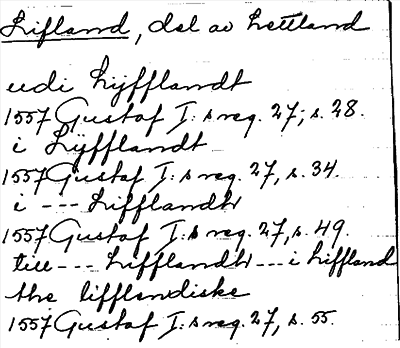 Lifland, del av Lettland
udi Lÿfflandt
1557 Gustaf I:s reg. 27, s. 28.
i Lÿfflandt
1557 Gustaf I:s reg. 27, s. 34.
i --- Lifflandh
1557 Gustaf I:s reg. 27, s. 49.
till --- Lifflandh --- i Liffland
the lifflendiske
1557 Gustaf I:s reg. 27, s. 55.